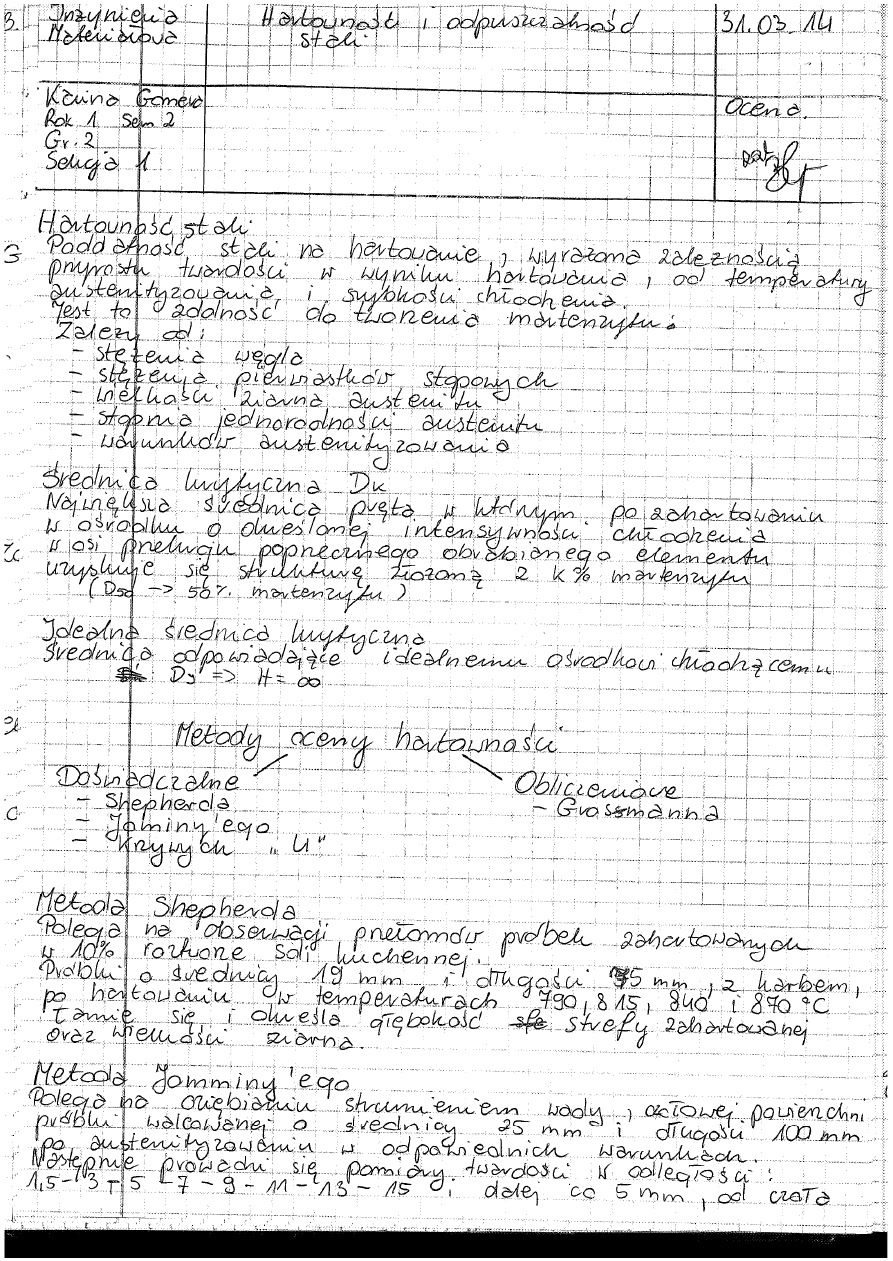 3.
Inżynieria
Materiałowa
Hartowność i odpuszczalność
stali
31.03.14
Karina
Rok 1 Sem 2
Gr. 2
Sekcja 1
Ocena.
Hartowność stali
Poddatność stali na hartowanie, wyrażona zależnością
przyrostu twardości w wyniku hartowania, od temperatury
austenityzowania i szybkości chłodzenia.
Jest to zdolność do tworzenia martenzytu.
Zależy od:
- stężenia węgla
- stężenia pierwiastków stopowych
- wielkości ziarna austenitu
- stopnia jednorodności austenitu
- warunków austenityzowania
Średnica krytyczna Dk
Największa średnica pręta w którym po zahartowaniu
w ośrodku o określonej intensywności chłodzenia
w osi przekroju poprzecznego obrabianego elementu
uzyskuje się strukturę złożoną z k% martenzytu
(D50 -> 50% martenzytu)
Idealna średnica krytyczna
Średnica odpowiadające idealnemu ośrodkowi chłodzącemu
=> H = ∞
Metody oceny hartowności
Doświadczalne
- Shepherda
- Jominy'ego
- Krzywych „U"
Obliczeniowe
- Grossmanna
Metoda Shepherda
Polega na obserwacji przełomów próbek zahartowanych
w 10% roztworze soli kuchennej.
Próbki o średnicy 19 mm i długości 75 mm, z karbem,
po hartowaniu w temperaturach 790, 815, 840 i 870 °C
łamie się i określa głębokość strefy zahartowanej
oraz wielkości ziarna.
Metoda Jomminy'ego
Polega na oziębianiu strumieniem wody, czołowej powierzchni
próbki walcowanej o średnicy 25 mm i długości 100 mm
po austenityzowaniu w odpowiednich warunkach.
Następnie prowadzi się pomiary twardości w odległości:
1,5 - 3 - 5 - 7 - 9 - 11 - 13 - 15 i dalej co 5 mm, od czoła